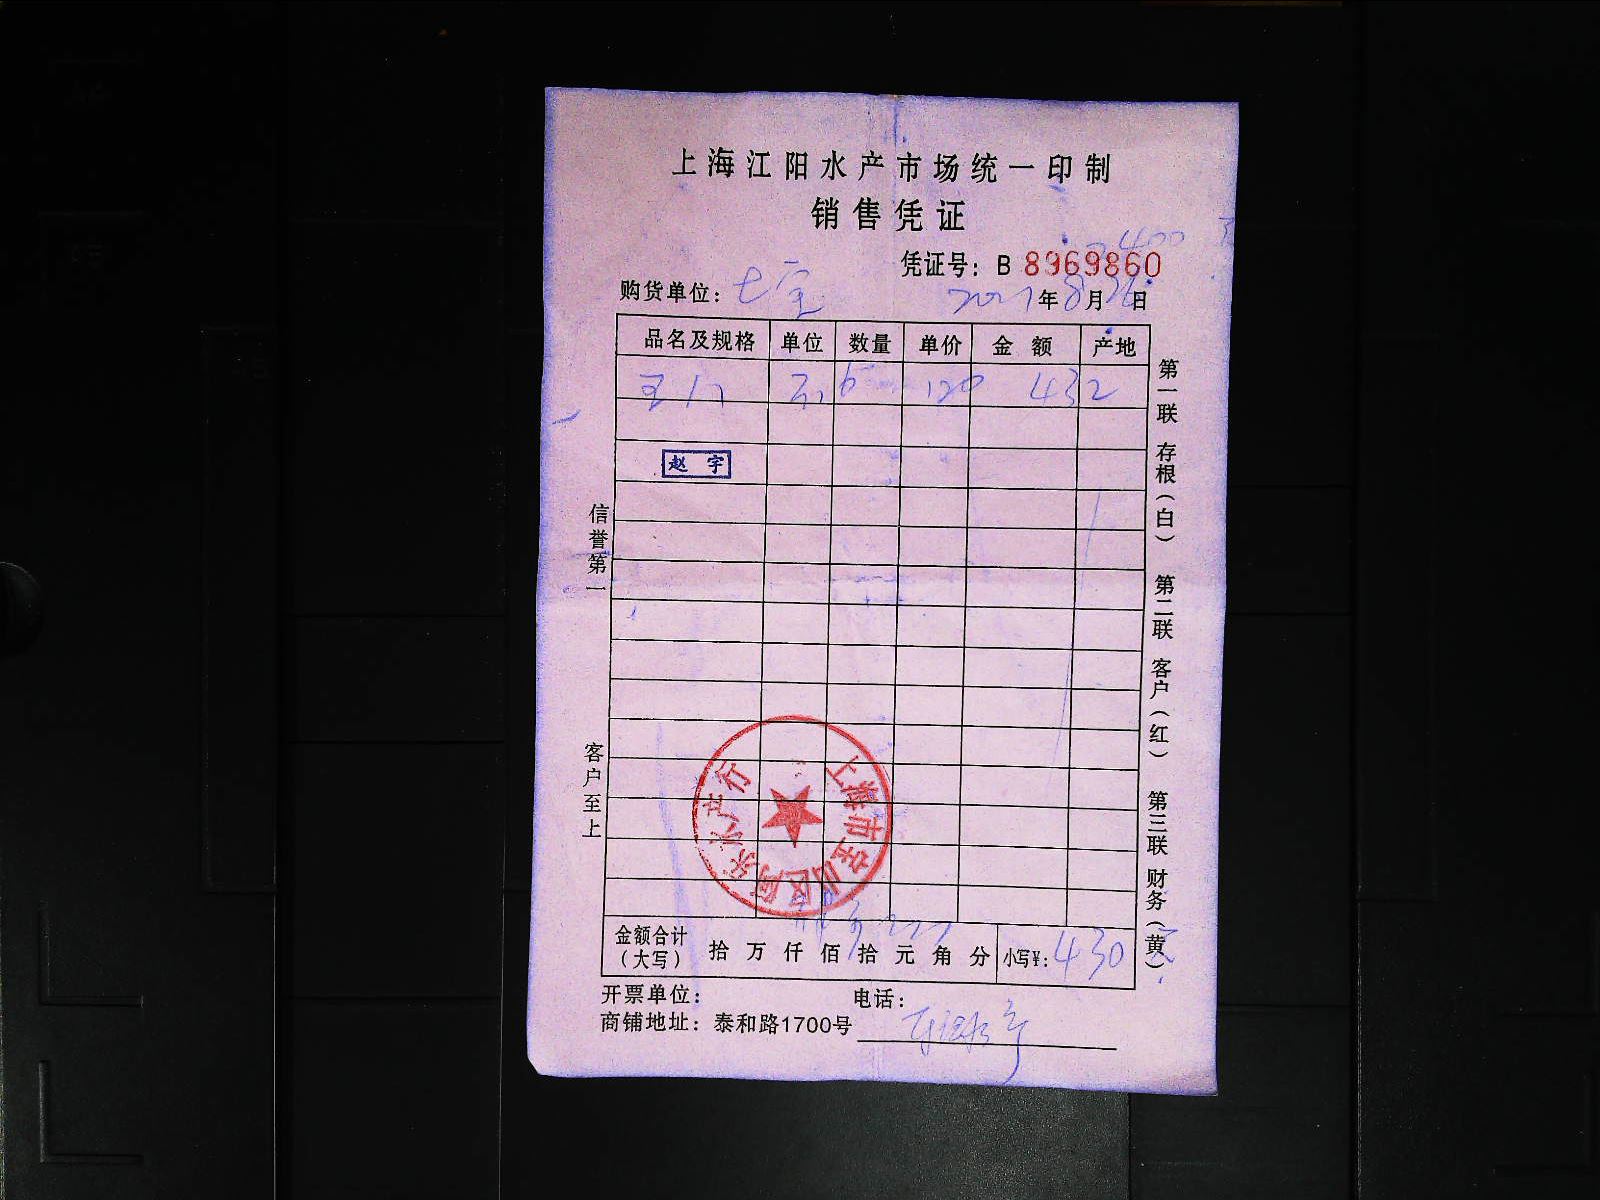 上海江阳水产市场统一印制
销售凭证
400
凭证号：B 8969860
购货单位：七宝 年8月26日
品名及规格 单位 数量 单价 金额 产地
6 120 432
赵宇
信誉第一
客户至上
第一联 存根（白） 第二联 客户（红） 第三联 财务（黄）
上海市宝山区阿乐水产行
金额合计（大写） 拾万仟佰拾元角分 小写¥：430
开票单位： 电话：
商铺地址：泰和路1700号